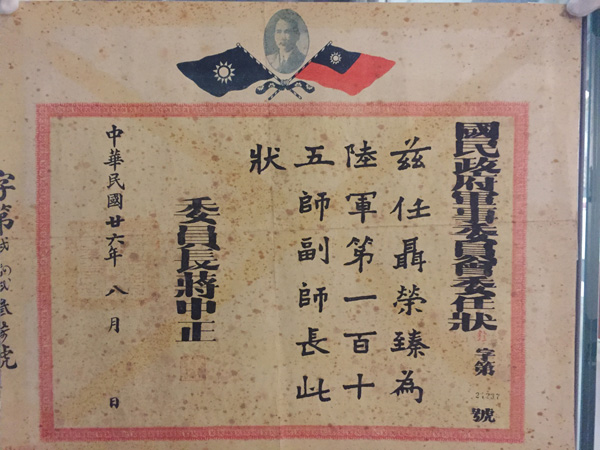 國民政府軍事委員會委任狀
字第
24737
號
茲任聶榮臻為
陸軍第一百十
五師副師長此
狀
委員長蔣中正
中華民國廿六年八月 日
字第
號